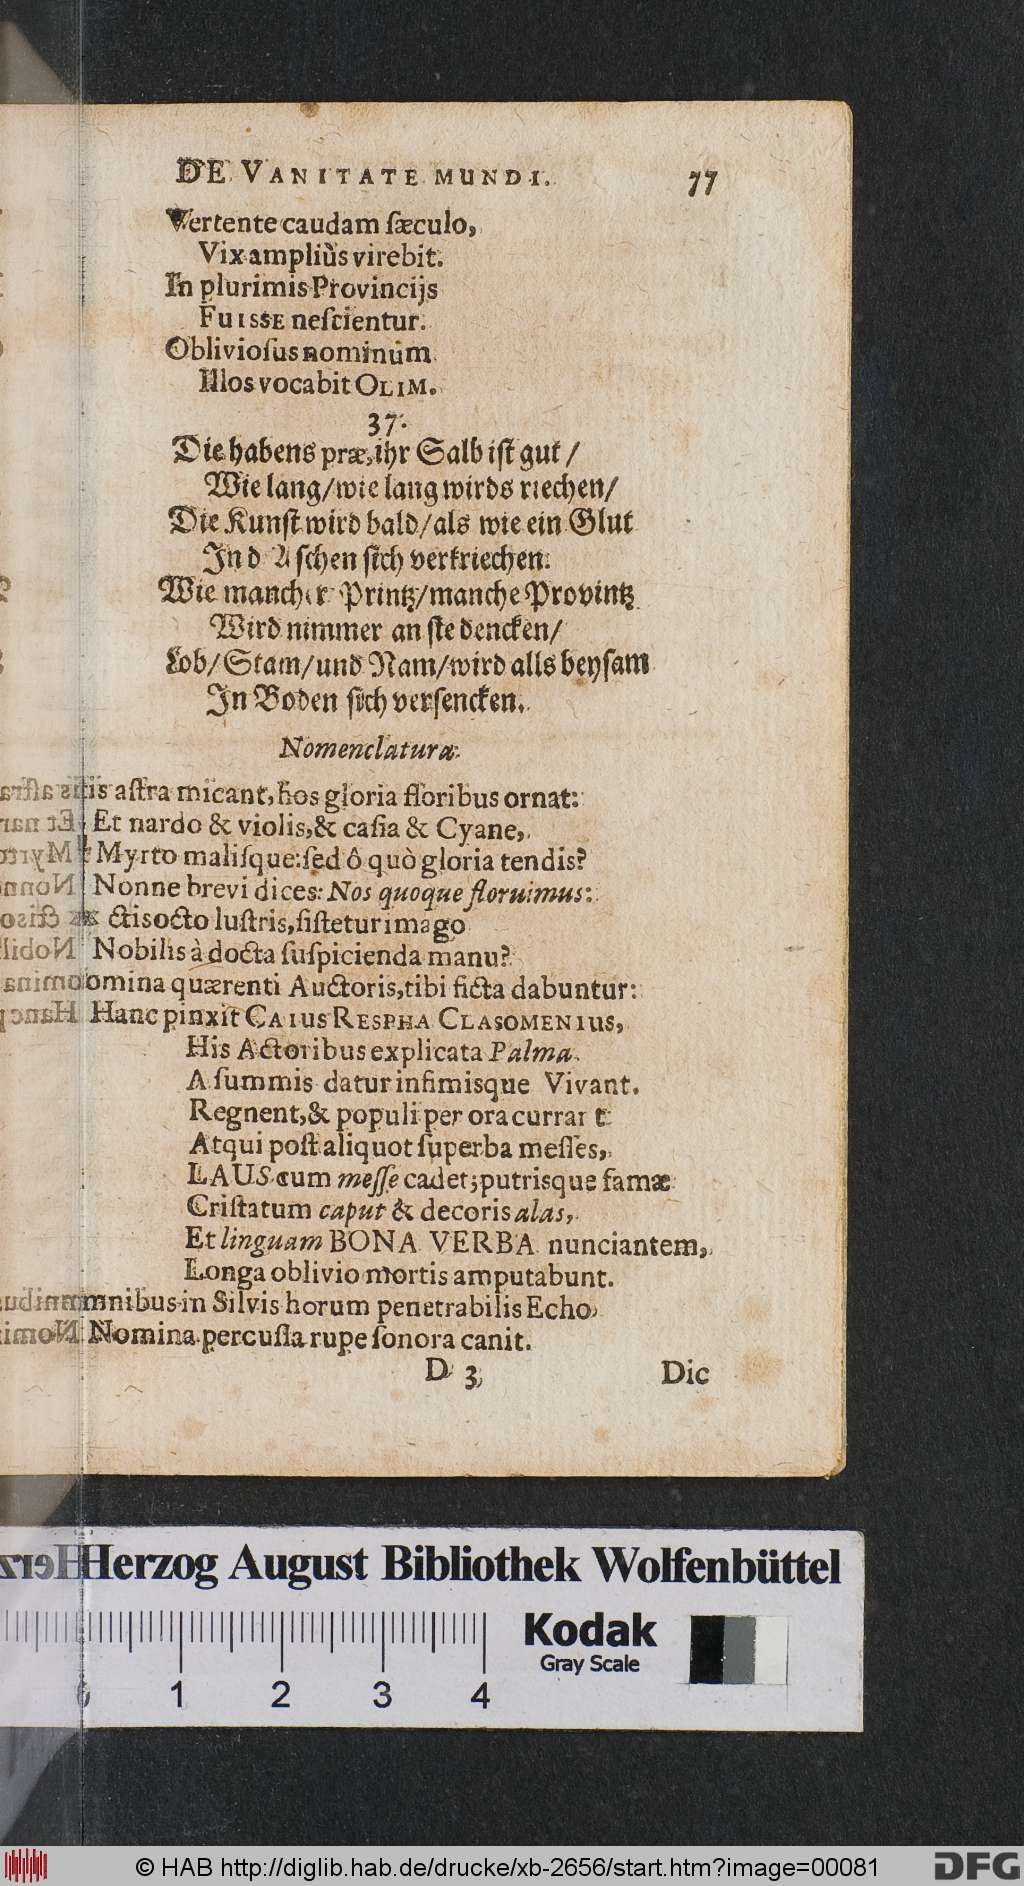 DE VANITATE MUNDI. 77
Vertente caudam ſæculo,
Vix ampliùs virebit.
In plurimis Provincijs
FUISSE neſcientur.
Oblivioſus nominum
Illos vocabit OLIM.
37.
Die habens præ, ihr Salb iſt gut /
Wie lang/wie lang wirds riechen/
Die Kunſt wird bald/als wie ein Glut
In d Aſchen ſich verkriechen.
Wie mancher Printz/manche Provintz
Wird nimmer an ſie dencken/
Lob/Stam/und Nam/wird alls beyſam
In Boden ſich verſencken.
Nomenclaturæ.
is aſtra micant, hos gloria floribus ornat:
Et nardo & violis, & caſia & Cyane,
Myrto maliſque: ſed ô quò gloria tendis?
Nonne brevi dices: Nos quoque floruimus:
ctis octo luſtris, ſiſtetur imago
Nobilis à docta ſuſpicienda manu?
omina quærenti Auctoris, tibi ficta dabuntur:
Hanc pinxit CAIUS RESPHA CLASOMENIUS,
His Actoribus explicata Palma
A ſummis datur infimisque Vivant.
Regnent, & populi per ora currant
Atqui poſt aliquot ſuperba meſſes,
LAUS cum meſſe cadet; putrisque famæ
Criſtatum caput & decoris alas,
Et linguam BONA VERBA nunciantem,
Longa oblivio mortis amputabunt.
mnibus in Silvis horum penetrabilis Echo
Nomina percuſſa rupe ſonora canit.
D 3 Dic
Herzog August Bibliothek Wolfenbüttel
Kodak
Gray Scale
0 1 2 3 4
© HAB http://diglib.hab.de/drucke/xb-2656/start.htm?image=00081
DFG